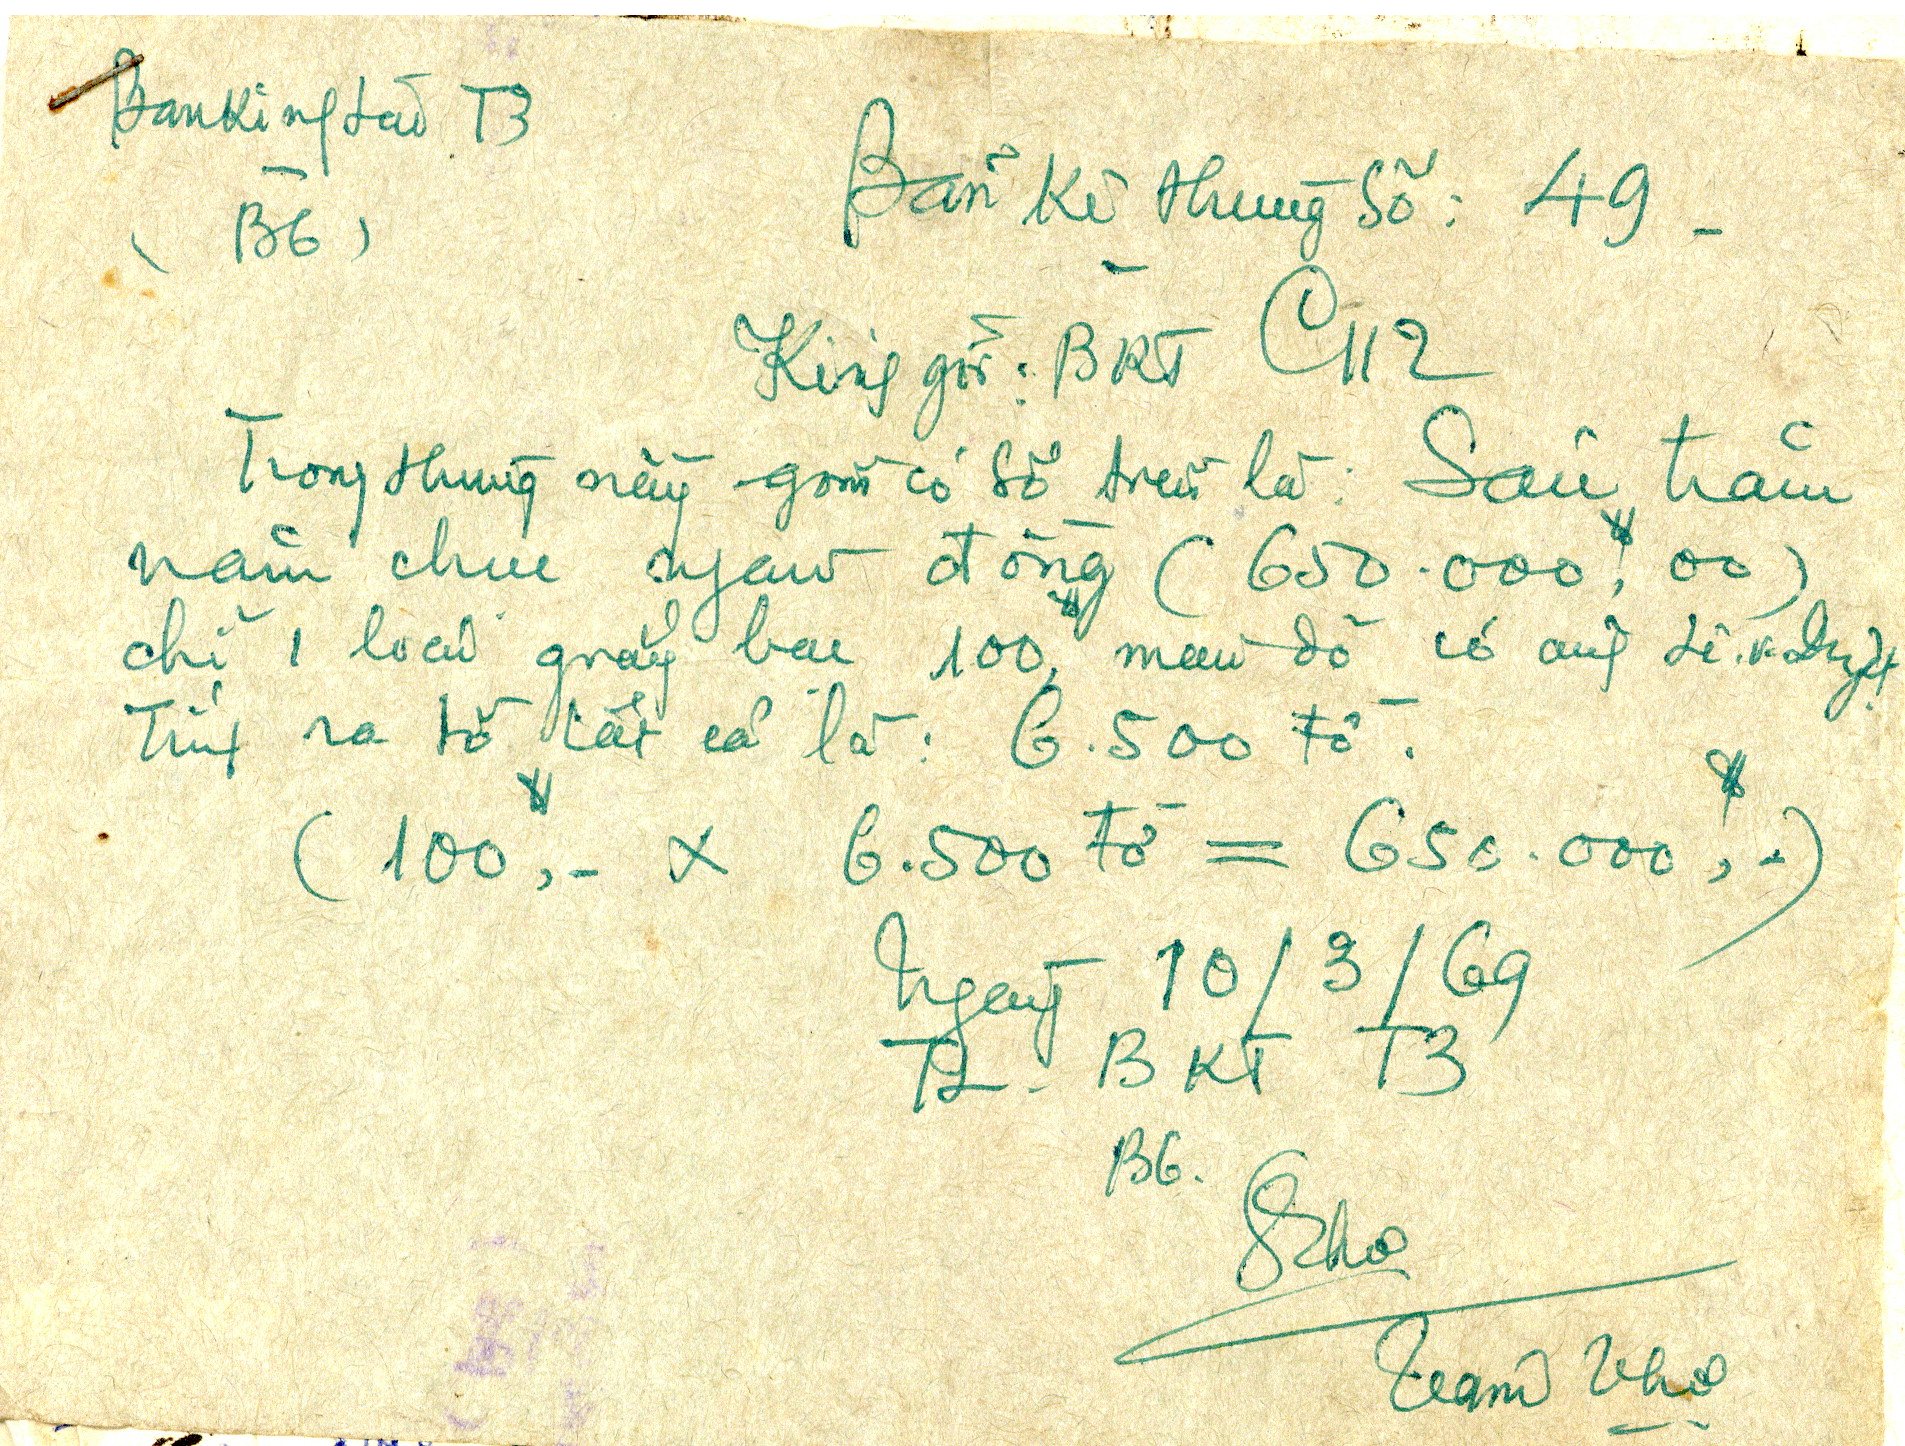 Ban Kinh tài T3
(B6)
Bản kê thùng số: 49 -
Kính gởi: BKT C112
Trong thùng nầy gồm có số tiền là: Sáu trăm
năm chục ngàn đồng (650.000$,00)
chỉ 1 loại giấy bạc 100$, màu đỏ có ông Lê.v.Duyệt
Tính ra tờ tất cả là: 6.500 tờ.
(100$,- x 6.500 tờ = 650.000$,-)
Ngày 10/3/69
TL. BKT T3
B6.
Năm Nhỏ